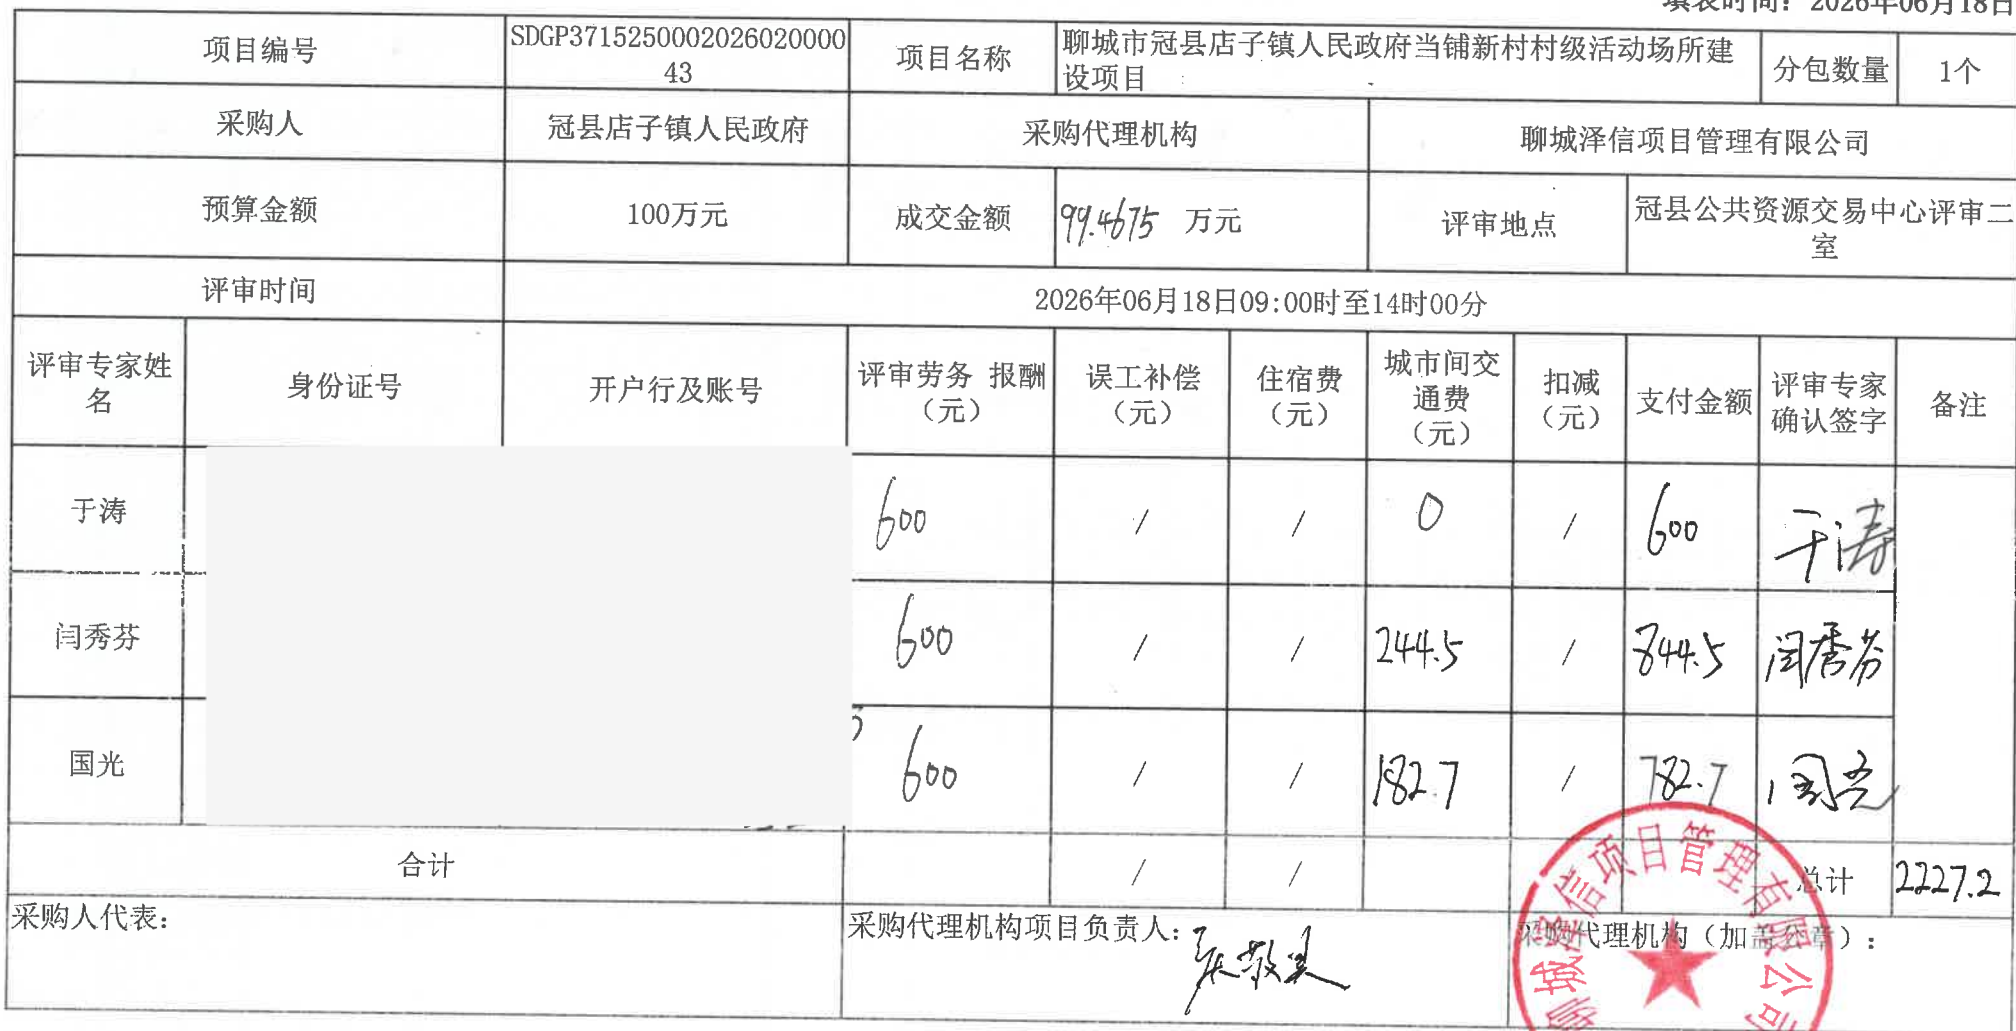 填表时间: 2026年06月18日
项目编号 SDGP3715250002026020000 项目名称 聊城市冠县店子镇人民政府当铺新村村级活动场所建 分包数量 1个
43 设项目
采购人 冠县店子镇人民政府 采购代理机构 聊城泽信项目管理有限公司
预算金额 100万元 成交金额 99.4675 万元 评审地点 冠县公共资源交易中心评审二
室
评审时间 2026年06月18日09:00时至14时00分
评审专家姓 身份证号 开户行及账号 评审劳务 报酬 误工补偿 住宿费 城市间交 扣减 支付金额 评审专家 备注
名 (元) (元) (元) 通费 (元) 确认签字
(元)
于涛 600 / / 0 / 600 于涛
闫秀芬 600 / / 244.5 / 844.5 闫秀芬
国光 600 / / 182.7 / 782.7 国光
合计 / / 总计 2227.2
采购人代表: 采购代理机构项目负责人: 采购代理机构(加盖公章):
聊城泽信项目管理有限公司